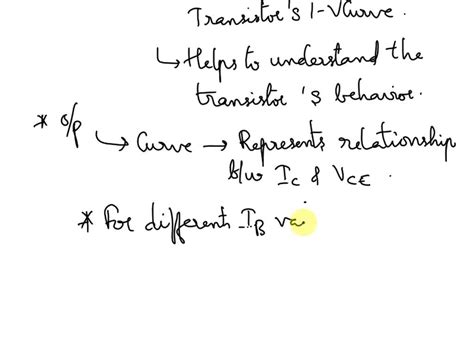 Transistor's I-VCurve.
↳ Helps to understand the
transistor's behavior.
* O/p
↳ Curve → Represents relationship
b/w I_C & V_CE.
* For different I_B va